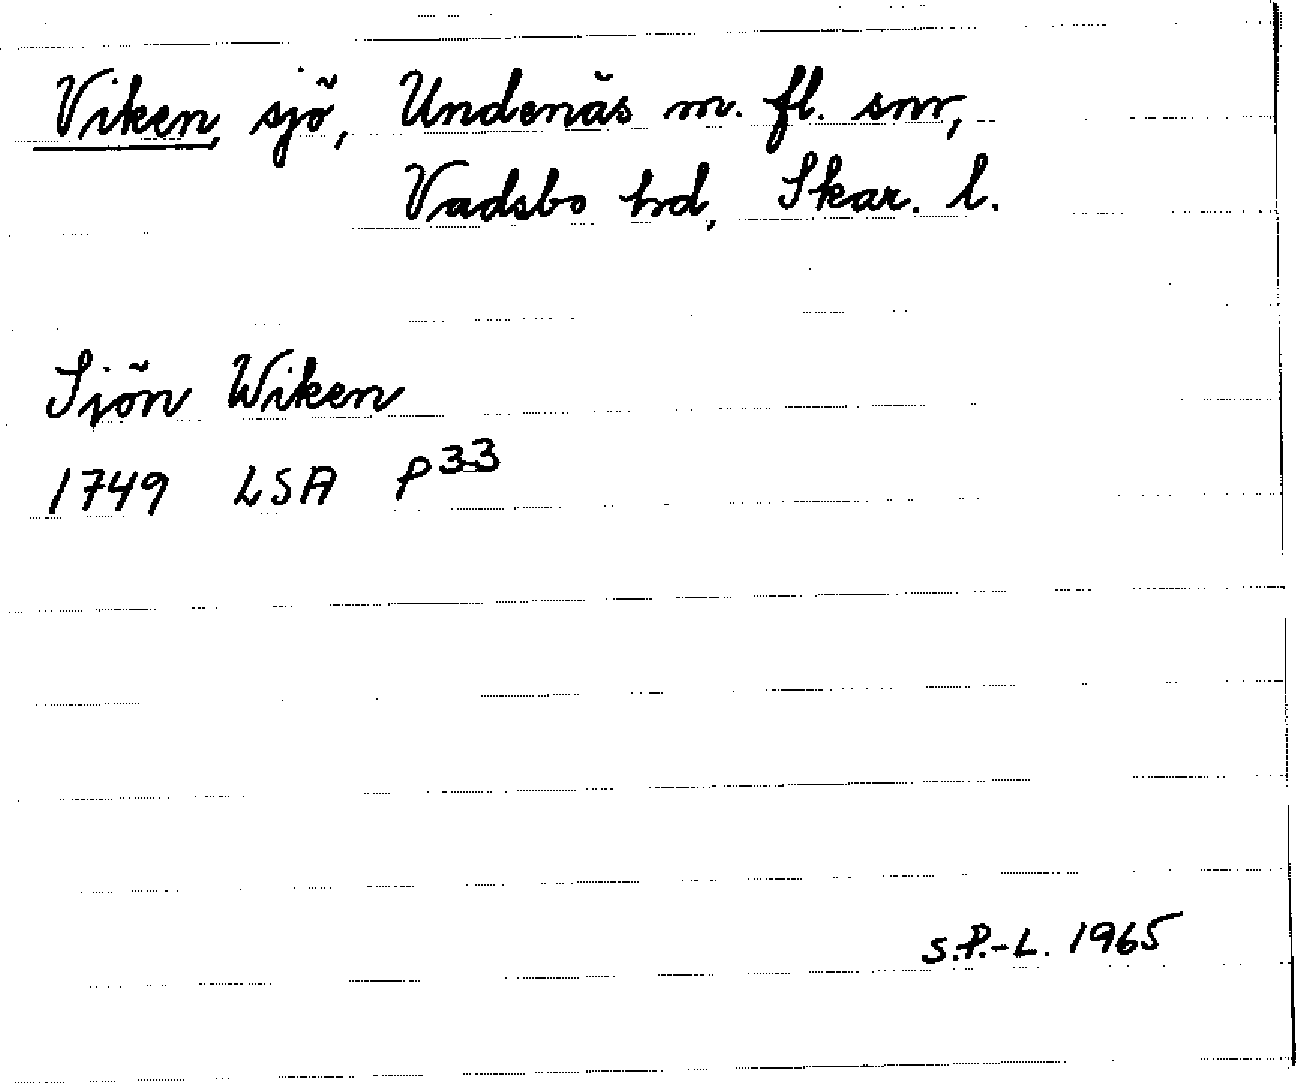 Viken, sjö, Undenäs m. fl. snr,
Vadsbo hd, Skar. l.
Sjön Wiken
1749 LSA P33
S.P.-L. 1965